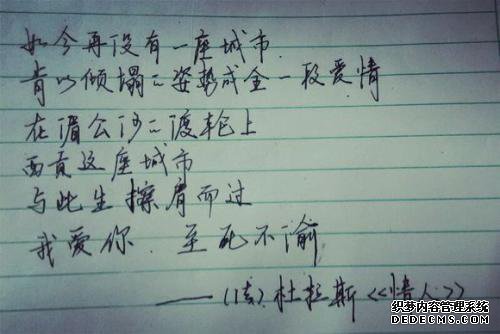 如今再没有一座城市.
肯以倾塌之姿势成全一段爱情
在湄公河之渡轮上
西贡这座城市
与此生擦肩而过
我爱你.至死不渝
——(法).杜拉斯《情人》
织梦内容管理系统
DEDECMS.COM